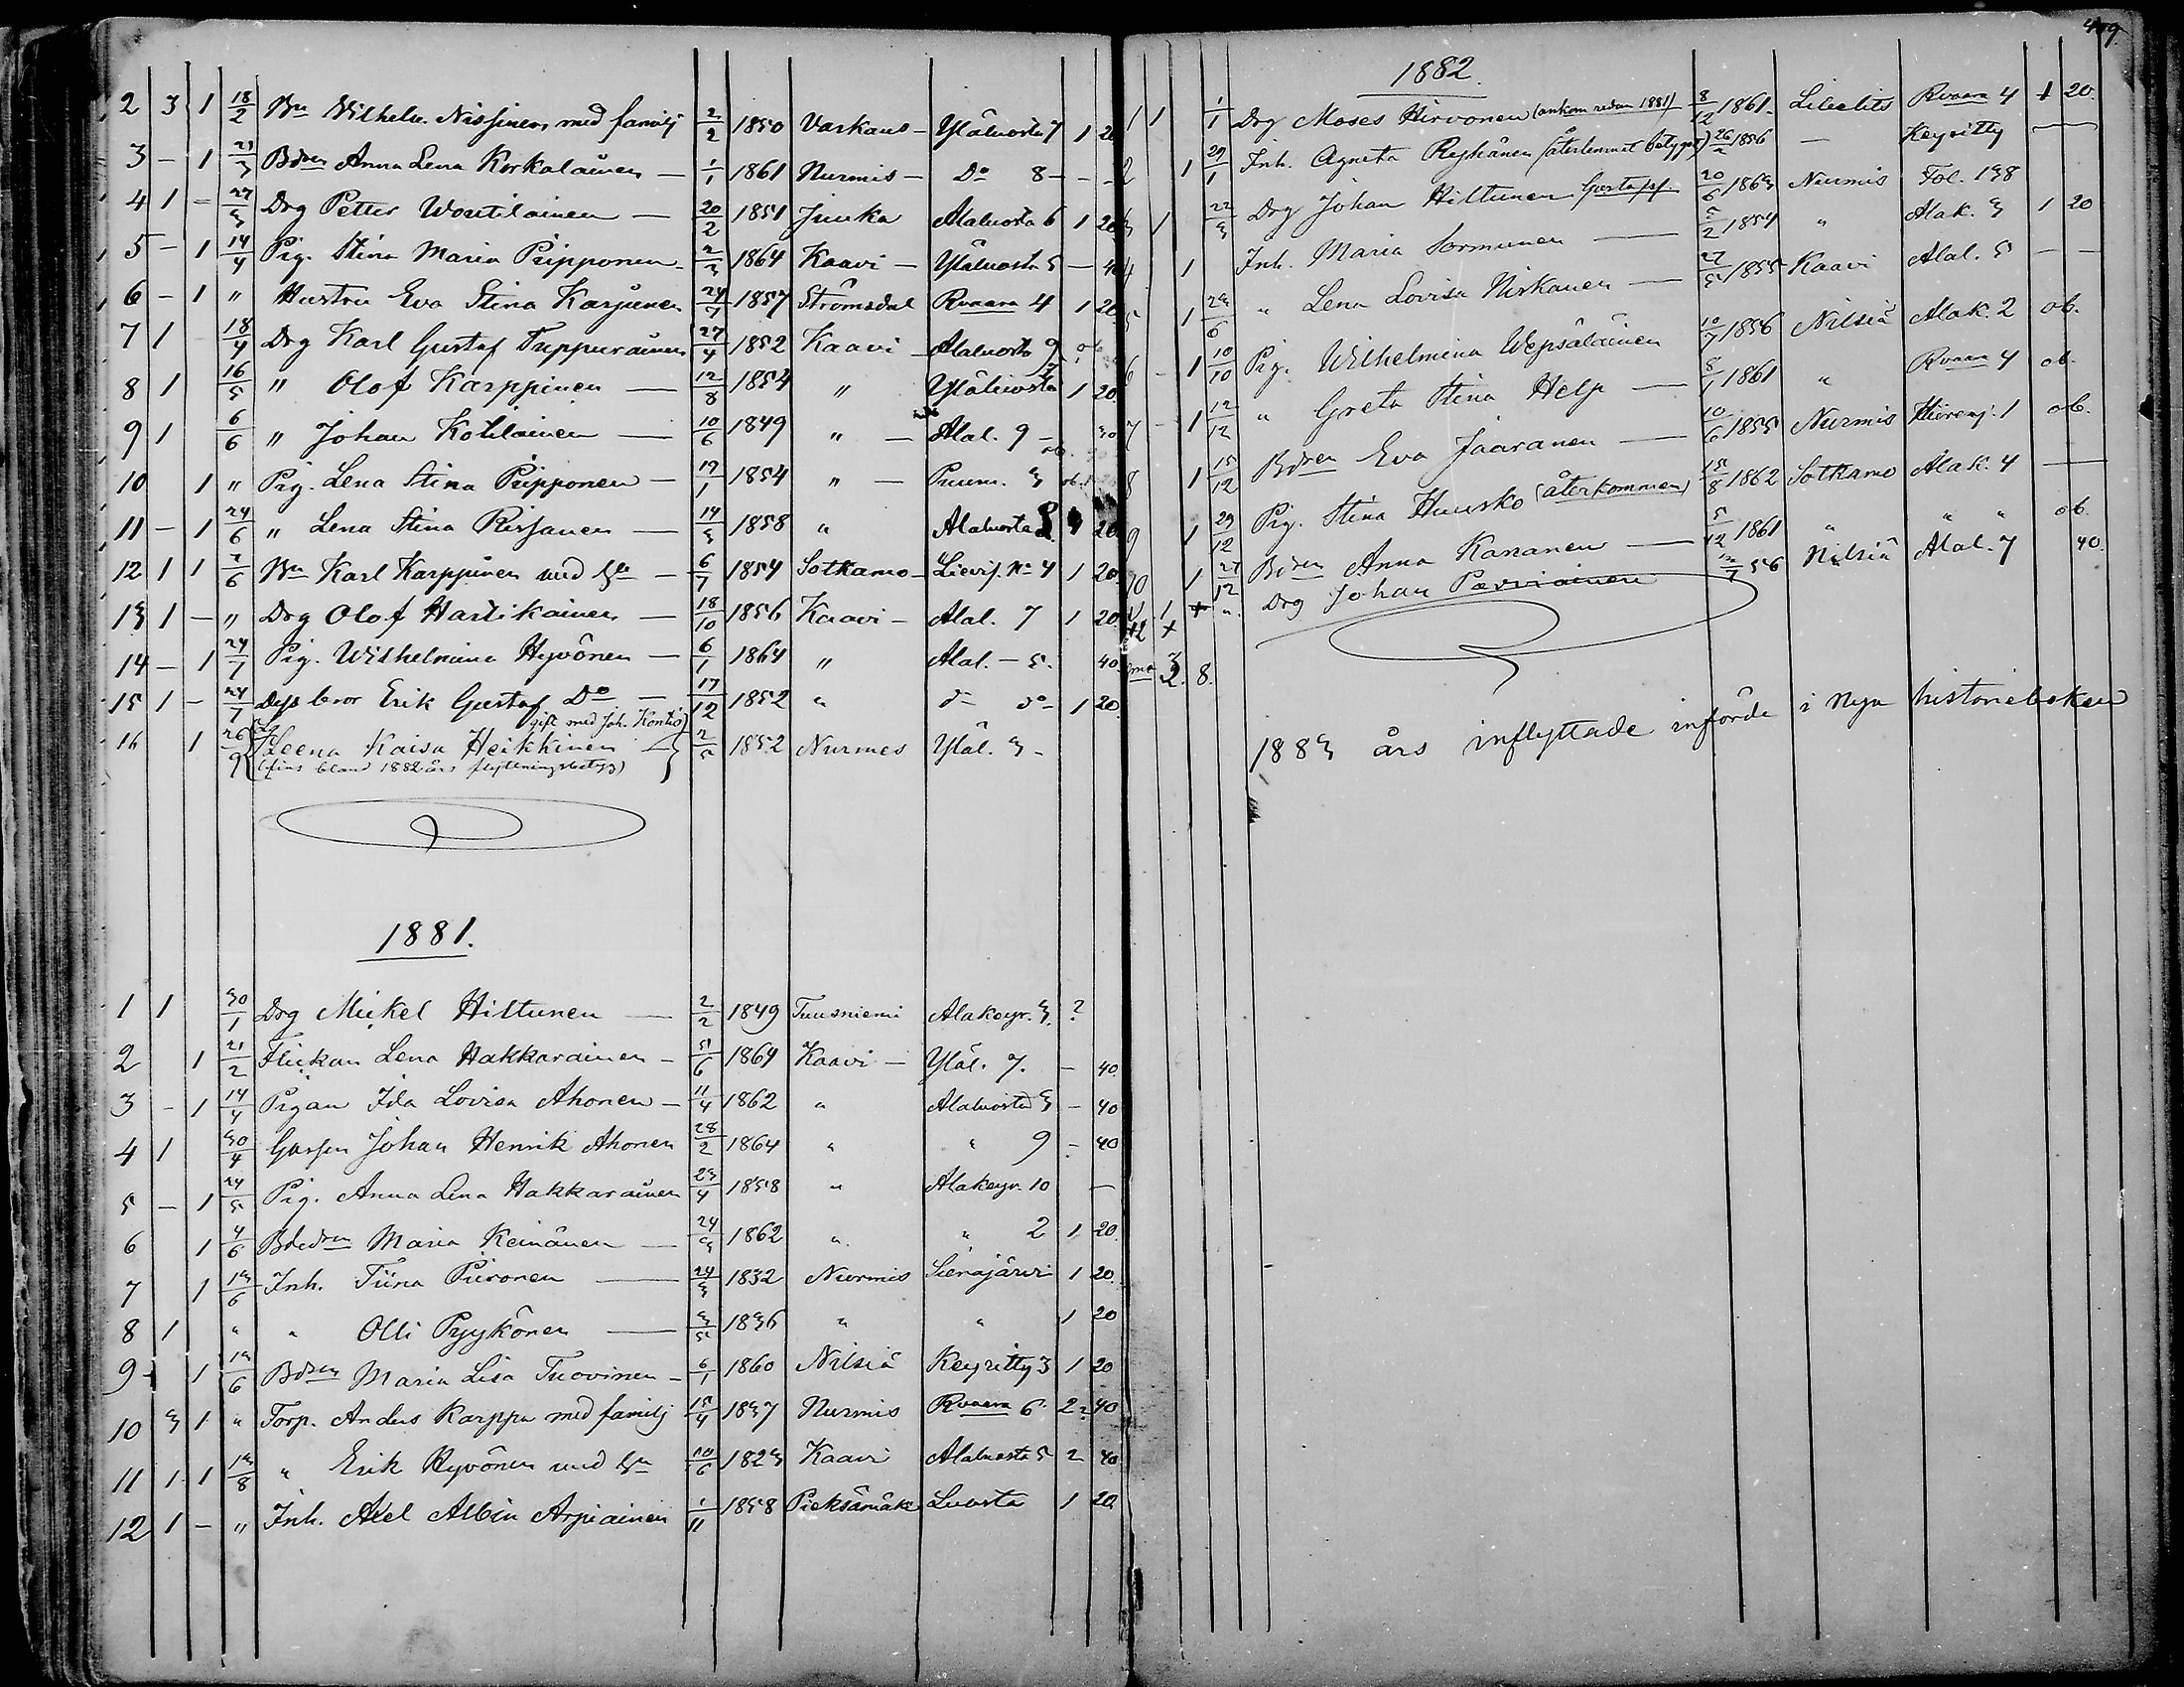 2 3 1 18/2 Bn Wilhelm Nissinen med familj 2/2 1850 Varkaus - Yläluosta 7 1 20
3 - 1 21/3 Bdren Anna Lena Korkalainen — 1/1 1861 Nurmis - Do 8 - - -
4 1 - 27/3 Drg Petter Woutilainen — 20/2 1851 Juuka Alaluosta 6 1 20
5 - 1 14/4 Pig. Stina Maria Pipponen - 2/3 1864 Kaavi - Yläluosta 5 - 40
6 - 1 " Hustru Eva Stina Karjunen 24/7 1857 Strömsdal Rvaara 4 1 20
7 1 18/4 Drg Karl Gustaf Tuppurainen 27/4 1852 Kaavi - Alaluosta 9
8 1 16/5 " Olof Karppinen — 12/8 1854 " Yläluosta 1 20
9 1 6/6 " Johan Kotilainen — 10/6 1849 " - Alal. 9 - 30
10 1 " Pig. Lena Stina Pipponen — 19/1 1854 " - Puum. 3 ob.
11 - 1 24/6 " Lena Stina Rissanen — 14/3 1858 " Alaluosta 20
12 1 1 2/6 Bn Karl Karppinen med h 6/7 1854 Sotkamo - Lievij. No 4 1 20
13 1 - " Drg Olof Hartikainen — 18/10 1856 Kaavi - Alal. 7 1 20
14 - 1 24/7 Pig. Wilhelmina Hyvönen — 6/1 1864 " Alal. - 5. 40
15 1 - 24/7 Dess bror Erik Gustaf Do — 17/12 1852 " d- do 1 20
gift med Joh. Kontio)
16 1 26/9 Leena Kaisa Heikkinen 2/5 1852 Nurmes Yläl. 3 -
(fins bland 1882 års flyttningsbetyg)
1881.
1 1 30/1 Drg Mickel Hiltunen — 2/2 1849 Tuusniemi Alakeyr. 3. ?
2 1 21/2 Flickan Lena Hakkarainen - 5/6 1864 Kaavi - Yläl. 7. - 40
3 - 1 14/4 Pigan Ida Lovisa Ahonen - 11/4 1862 " Alaluosta 3 - 40
4 1 30/4 Gossen Johan Henrik Ahonen 28/2 1864 " " 9 - 40
5 - 1 24/5 Pig. Anna Lena Hakkarainen 23/4 1858 " Alakeyr. 10 —
6 1 4/6 Bdedren Maria Keinänen — 24/3 1862 " " 2 1 20
7 1 13/6 Inh. Tiina Piironen — 24/3 1832 Nurmis Sienäjärvi 1 20.
8 1 " " Olli Pyykönen — 3/5 1836 " " 1 20
9 - 1 13/6 Bdren Maria Lisa Tuovinen - 6/1 1860 Nilsiä Keyritty 3 1 20
10 3 1 " Torp. Anders Karppa med familj 15/4 1837 Nurmis Rvaara 6 2 40
11 1 1 13/8 " Erik Hyvönen med h 10/6 1823 Kaavi Alaluosta 5 2 40
12 1 - " Inh. Axel Albin Arpiainen 1/11 1858 Pieksämäki Luosta 1 20
1882.
1 1 1/1 Drg Moses Hirvonen (ankom redan 1881) 8/12 1861 - Libelits Rvaara 4 1 20.
2 1 29/1 Inh. Agneta Rephänen (återlemnat betyget) 26/2 1856 — Keyritty —
3 1 22/3 Drg Johan Hiltunen Gustafss. 20/6 1863 Nurmis Fol. 138
4 1 Inh. Maria Sormunen — 5/2 1854 " Alak. 3 1 20
5 1 23/6 " Lena Lovisa Niskanen — 27/5 1855 Kaavi Alal. 5 — —
6 - 1 10/10 Pig. Wilhelmina Wepsäläinen 10/7 1856 Nilsiä Alak. 2 ob.
7 - 1 12/12 " Greta Stina Help — 8/1 1861 " Rvaara 4 ob.
8 1 15/12 Bdren Eva Jaaranen — 10/6 1855 Nurmis 1 ob.
9 1 29/12 Pig. Stina Huusko (återkommen) 15/8 1862 Sotkamo Alak. 4 —
10 1 27/12 Bdren Anna Kananen — 5/12 1861 " " " ob.
1 " Drg Johan Parviainen 56 Nilsiä Alal. 7 40.
8.
1883 års inflyttade införde i nya historieboken